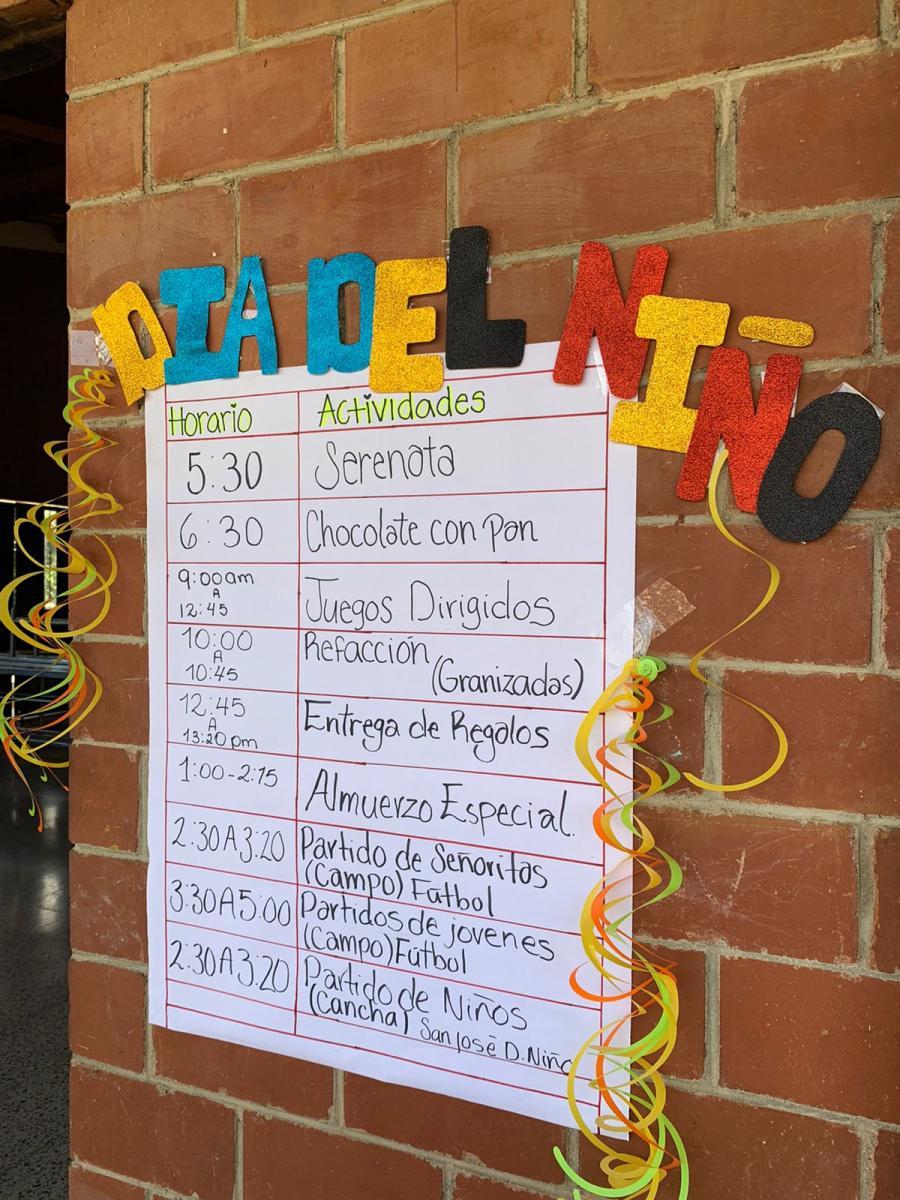 DIA DEL NIÑO
Horario Actividades
5:30 Serenata
6:30 Chocolate con Pan
9:00am
A
12:45
Juegos Dirigidos
10:00
A
10:45
Refacción
(Granizadas)
12:45
A
13:20 pm
Entrega de Regalos
1:00-2:15 Almuerzo Especial.
2:30 A 3:20 Partido de Señoritas
(Campo) Futbol
3:30 A 5:00 Partidos de jovenes
(Campo) Fútbol
2:30 A 3:20 Partido de Niños
(Cancha) San José D. Niño